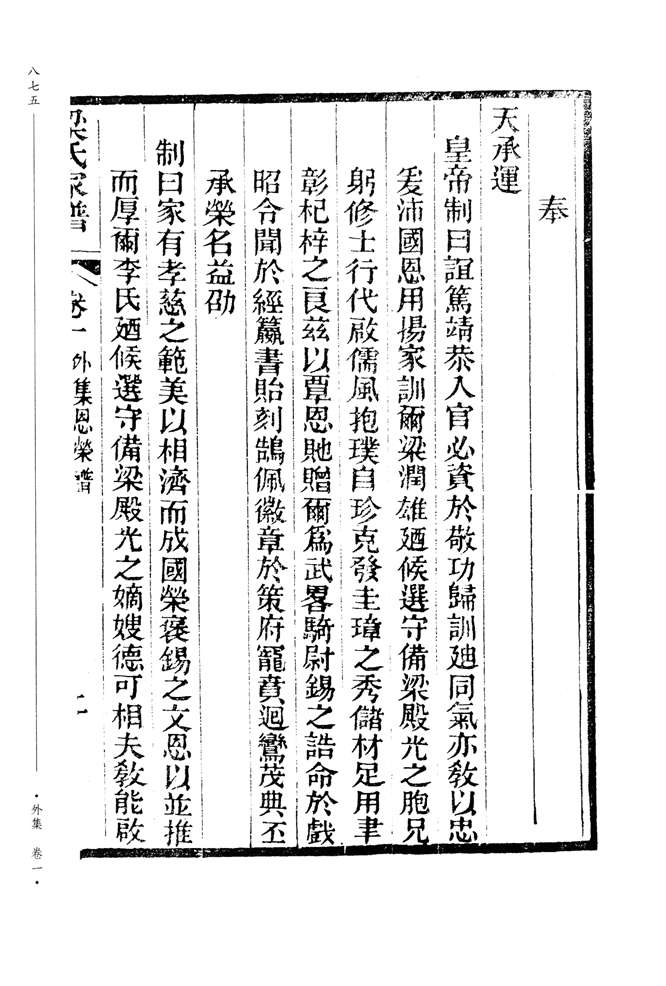 奉
天承運
皇帝制曰誼篤靖恭入官必資於敬功歸訓廸同氣亦敎以忠
爰沛國恩用揚家訓爾梁潤雄廼候選守備梁殿光之胞兄
躬修士行代啟儒風抱璞自珍克發圭璋之秀儲材足用聿
彰杞梓之良茲以覃恩貤贈爾爲武畧騎尉錫之誥命於戲
昭令聞於經籯書貽刻鵠佩徽章於策府寵賁迴鸞茂典丕
承榮名益劭
制曰家有孝慈之範美以相濟而成國榮褒錫之文恩以並推
而厚爾李氏廼候選守備梁殿光之嫡嫂德可相夫敎能啟
梁氏家譜 卷一 外集恩榮譜 二
八七五
·外集 卷一·